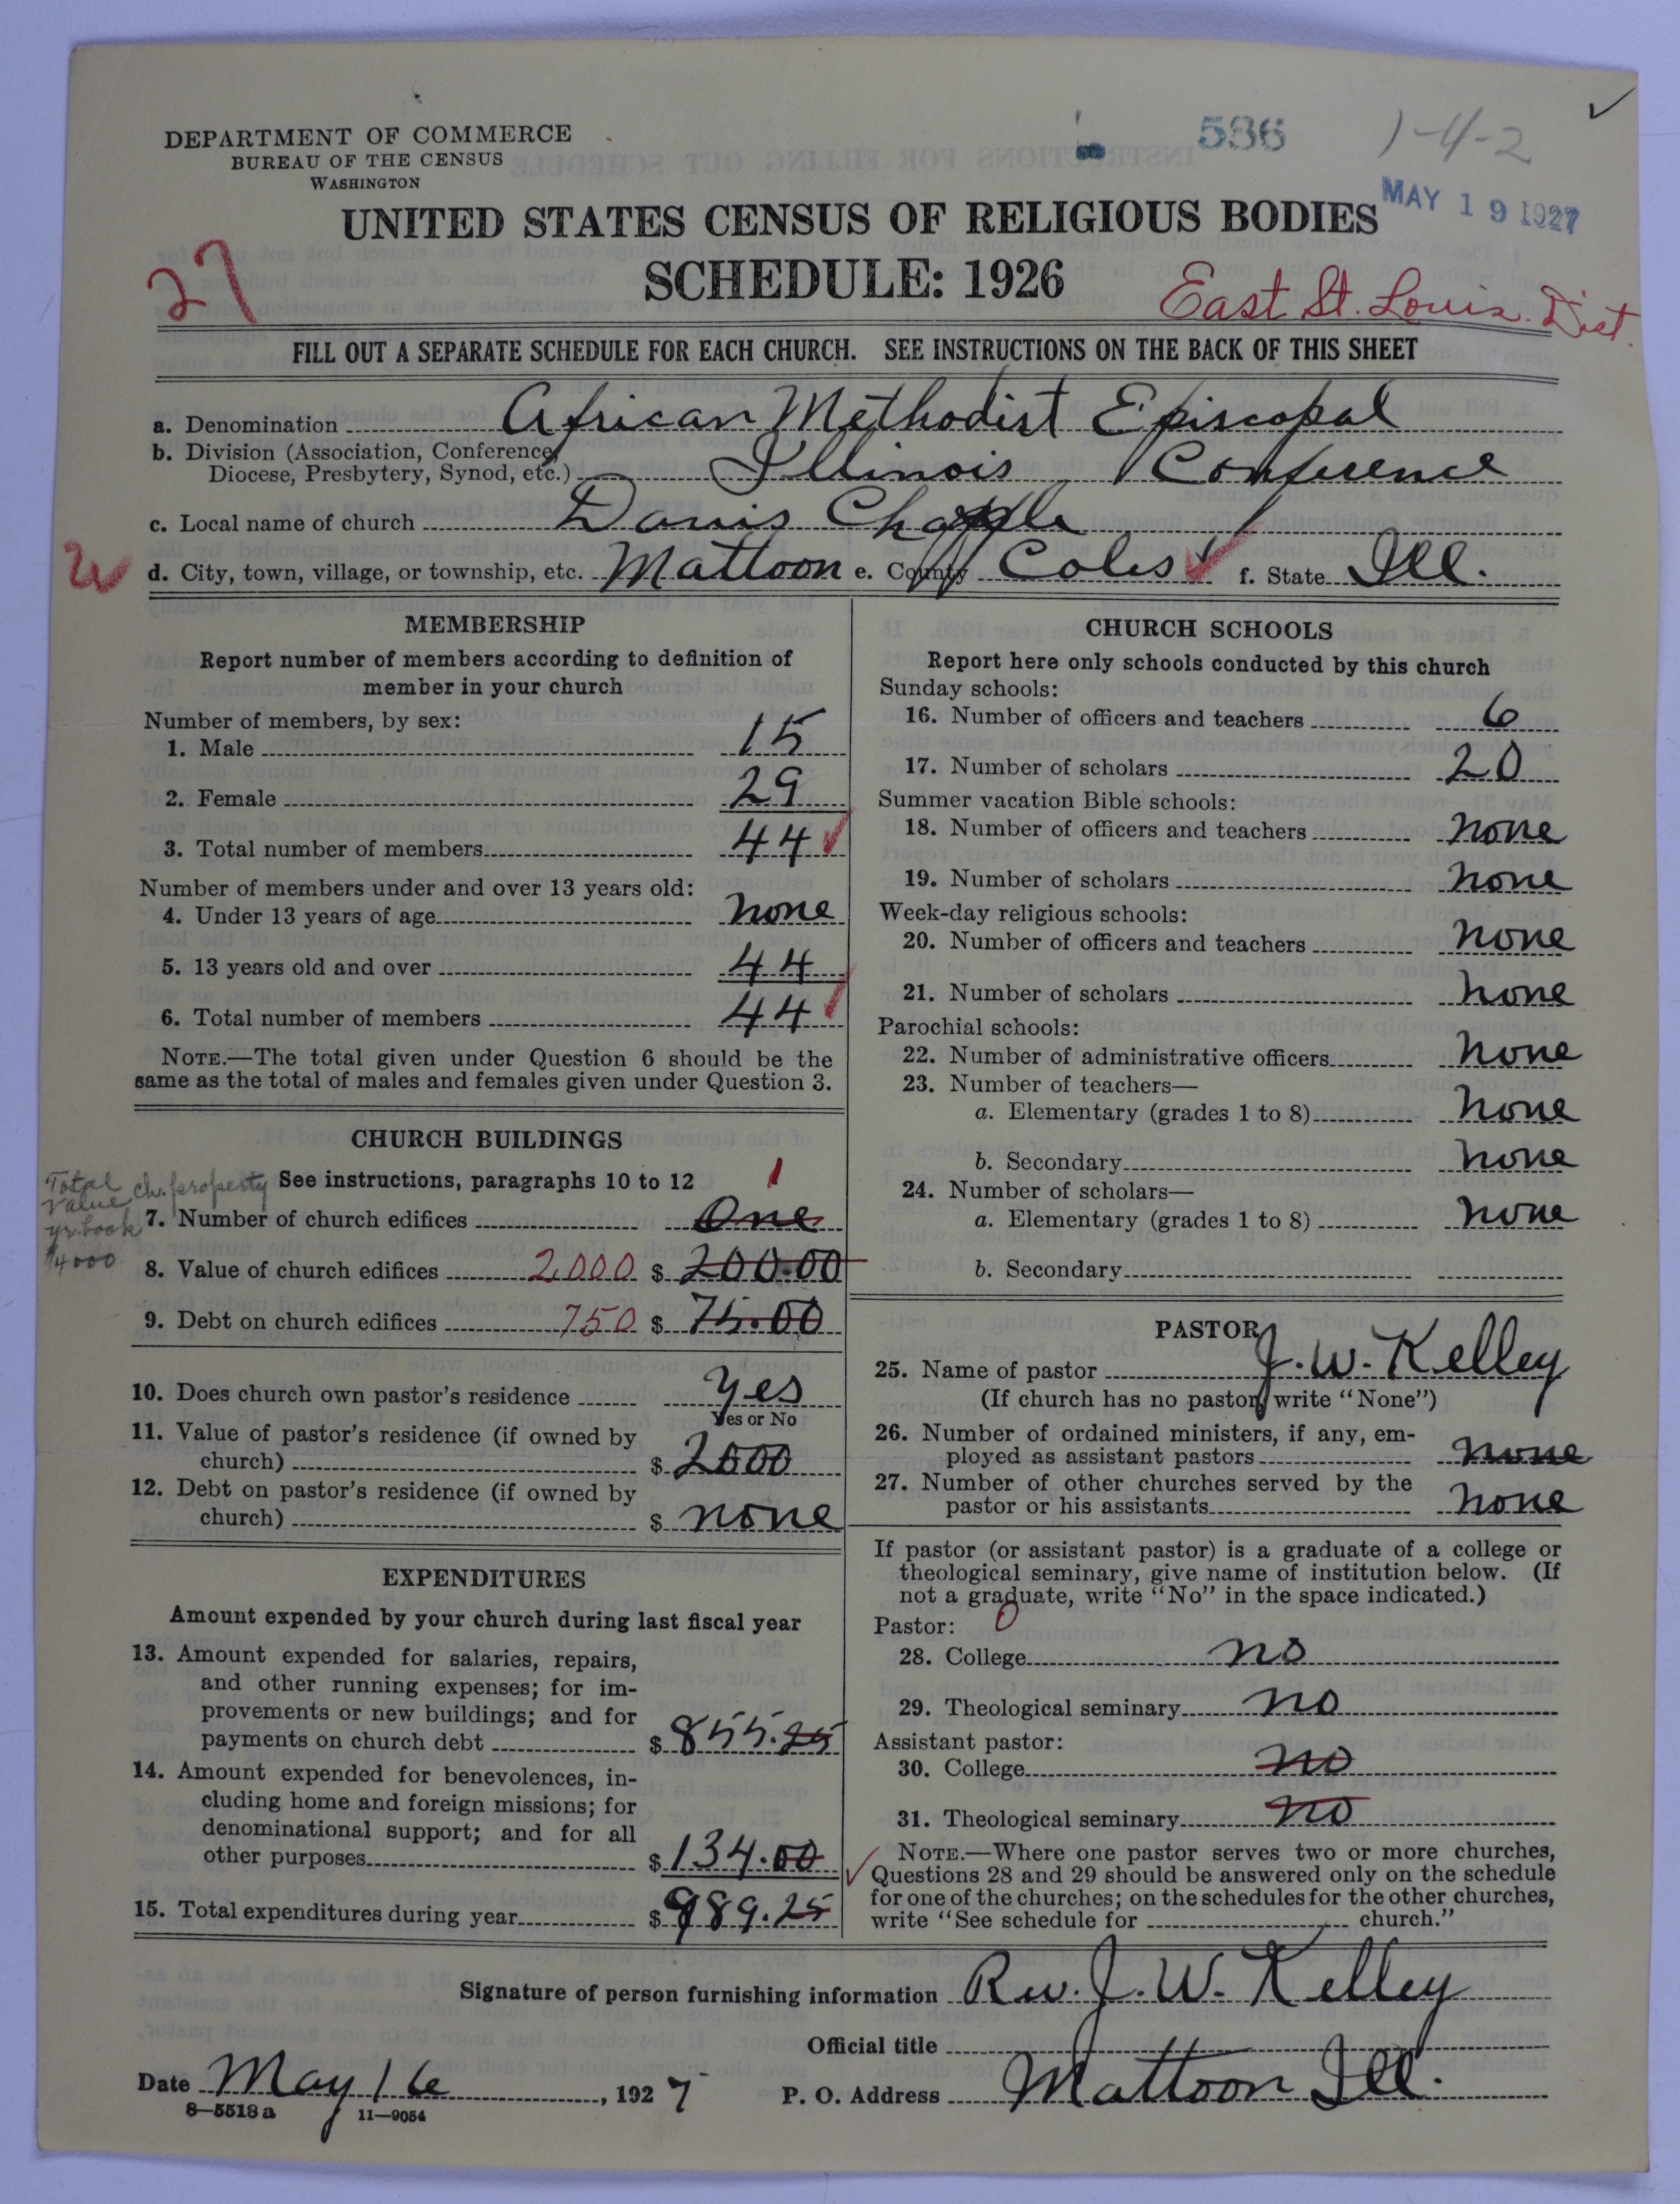 DEPARTMENT OF COMMERCE
BUREAU OF THE CENSUS
WASHINGTON
536
1-4-2
MAY 19 1927
UNITED STATES CENSUS OF RELIGIOUS BODIES
SCHEDULE: 1926
27
East St. Louis Dist.
FILL OUT A SEPARATE SCHEDULE FOR EACH CHURCH. SEE INSTRUCTIONS ON THE BACK OF THIS SHEET
a. Denomination African Methodist Episcopal
b. Division (Association, Conference,
Diocese, Presbytery, Synod, etc.) Illinois Conference
c. Local name of church Davis Chapple
d. City, town, village, or township, etc. Mattoon e. County Coles f. State Ill.
MEMBERSHIP
Report number of members according to definition of
member in your church
Number of members, by sex:
1. Male 15
2. Female 29
3. Total number of members 44
Number of members under and over 13 years old:
4. Under 13 years of age none
5. 13 years old and over 44
6. Total number of members 44
NOTE.—The total given under Question 6 should be the
same as the total of males and females given under Question 3.
CHURCH BUILDINGS
See instructions, paragraphs 10 to 12
Total ch. property
value
yr. book
$4000
1
7. Number of church edifices One
8. Value of church edifices 2000 $ 200.00
9. Debt on church edifices 750 $ 75.00
10. Does church own pastor's residence yes
Yes or No
11. Value of pastor's residence (if owned by
church) $ 2000
12. Debt on pastor's residence (if owned by
church) $ none
EXPENDITURES
Amount expended by your church during last fiscal year
13. Amount expended for salaries, repairs,
and other running expenses; for im-
provements or new buildings; and for
payments on church debt $ 855.25
14. Amount expended for benevolences, in-
cluding home and foreign missions; for
denominational support; and for all
other purposes $ 134.00
15. Total expenditures during year $ 989.25
CHURCH SCHOOLS
Report here only schools conducted by this church
Sunday schools:
16. Number of officers and teachers 6
17. Number of scholars 20
Summer vacation Bible schools:
18. Number of officers and teachers none
19. Number of scholars none
Week-day religious schools:
20. Number of officers and teachers none
21. Number of scholars none
Parochial schools:
22. Number of administrative officers none
23. Number of teachers—
a. Elementary (grades 1 to 8) none
b. Secondary none
24. Number of scholars—
a. Elementary (grades 1 to 8) none
b. Secondary
PASTOR
25. Name of pastor J. W. Kelley
(If church has no pastor, write "None")
26. Number of ordained ministers, if any, em-
ployed as assistant pastors none
27. Number of other churches served by the
pastor or his assistants none
If pastor (or assistant pastor) is a graduate of a college or
theological seminary, give name of institution below. (If
not a graduate, write "No" in the space indicated.)
Pastor: 0
28. College no
29. Theological seminary no
Assistant pastor:
30. College no
31. Theological seminary no
NOTE.—Where one pastor serves two or more churches,
Questions 28 and 29 should be answered only on the schedule
for one of the churches; on the schedules for the other churches,
write "See schedule for church."
Signature of person furnishing information Rev. J. W. Kelley
Official title
Date May 16, 1927 P. O. Address Mattoon Ill.
8—5518 a 11—9054